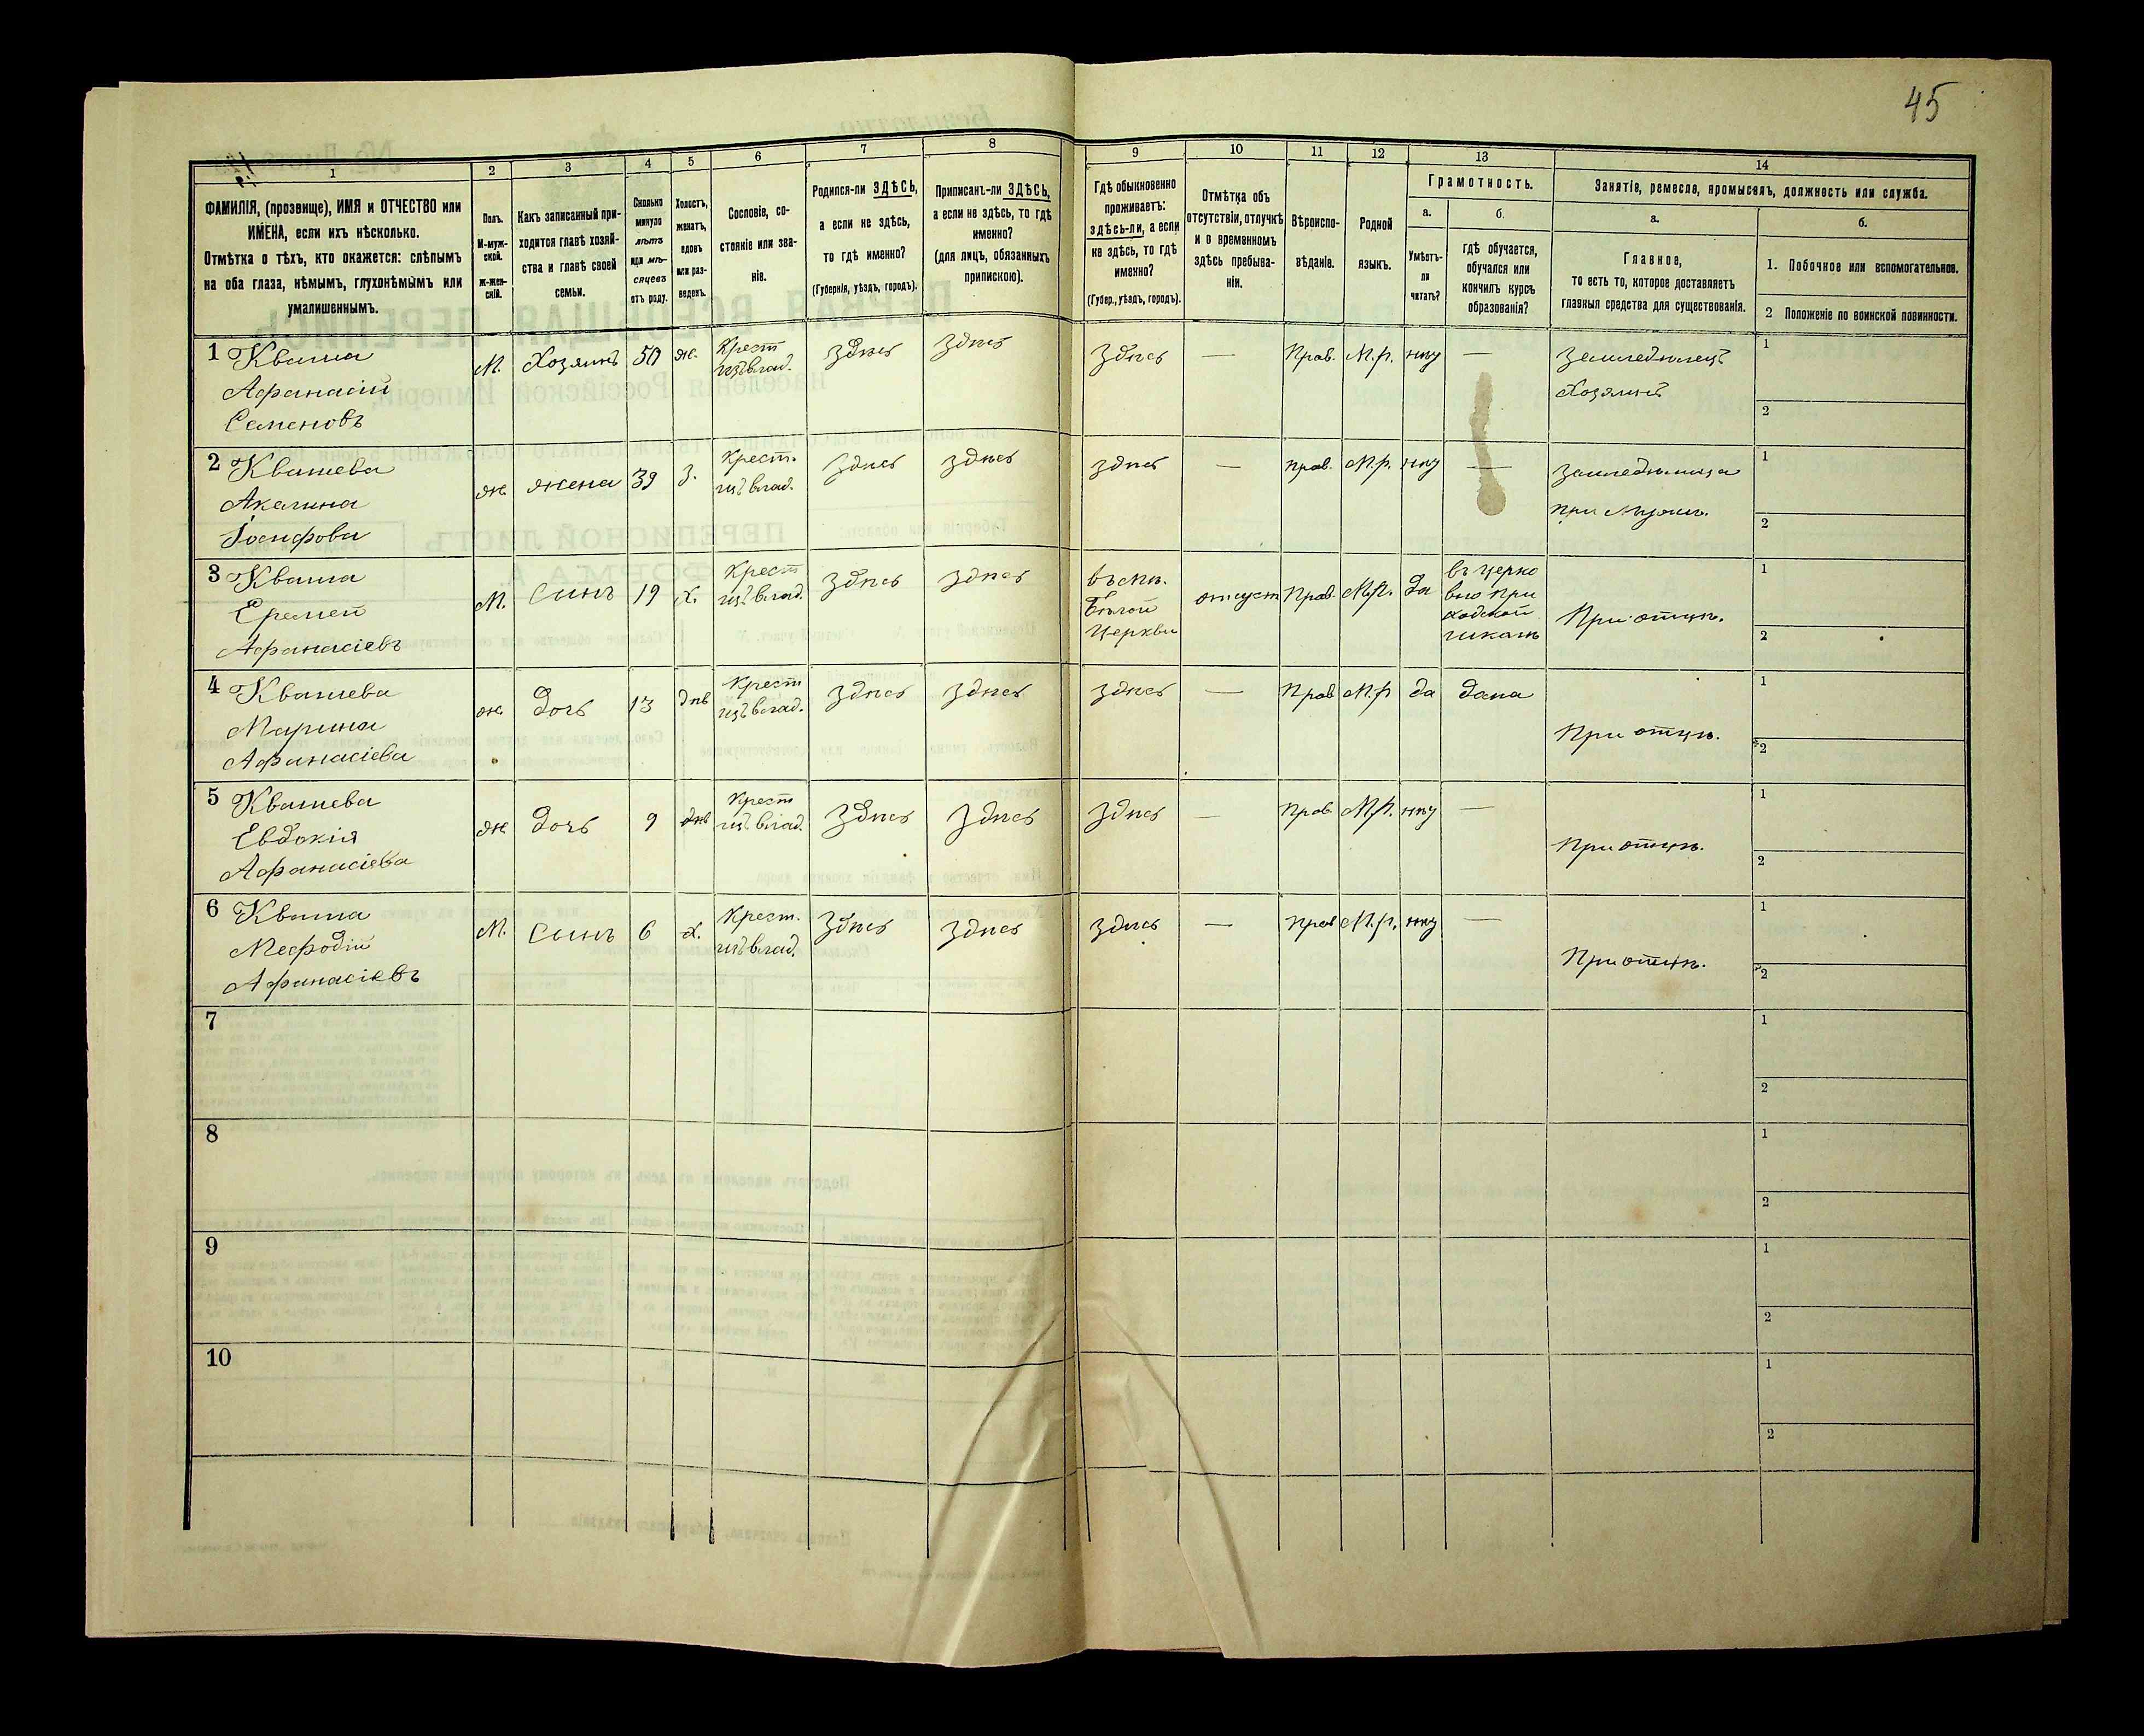 45
1
2
3
4
5
6
7
8
9
10
11
12
13
14
ФАМИЛІЯ, (прозвище), ИМЯ и ОТЧЕСТВО или
ИМЕНА, если ихъ нѣсколько.
Отмѣтка о тѣхъ, кто окажется: слѣпымъ
на оба глаза, нѣмымъ, глухонѣмымъ или
умалишеннымъ.
Полъ.
М-муж-
ской.
ж-жен-
скій.
Какъ записанный при-
ходится главѣ хозяй-
ства и главѣ своей
семьи.
Сколько
минуло
лѣтъ
или мѣ-
сяцевъ
отъ роду.
Холостъ,
женатъ,
вдовъ
или раз-
веденъ.
Сословіе, со-
стояніе или зва-
ніе.
Родился-ли ЗДѢСЬ,
а если не здѣсь,
то гдѣ именно?
(Губернія, уѣздъ, городъ).
Приписанъ-ли ЗДѢСЬ,
а если не здѣсь, то гдѣ
именно?
(для лицъ, обязанныхъ
припискою).
Гдѣ обыкновенно
проживаетъ:
здѣсь-ли, а если
не здѣсь, то гдѣ
именно?
(Губер., уѣздъ, городъ).
Отмѣтка объ
отсутствіи, отлучкѣ
и о временномъ
здѣсь пребыва-
ніи.
Вѣроиспо-
вѣданіе.
Родной
языкъ.
Грамотность.
а.
Умѣетъ-
ли
читать?
б.
гдѣ обучается,
обучался или
кончилъ курсъ
образованія?
Занятіе, ремесло, промыселъ, должность или служба.
а.
Главное,
то есть то, которое доставляетъ
главныя средства для существованія.
б.
1. Побочное или вспомогательное.
2 Положеніе по воинской повинности.
1 Кваша
Афанасій
Семеновъ
М. Хозяинъ 50 ж. Крест изъ влад. здѣсь здѣсь здѣсь — Прав. М.р. нѣт — Земледѣлецъ
Хозяинъ
1
2
2 Квашева
Акилина
Іосифова
ж. жена 39 з. Крест. изъ влад. здѣсь здѣсь здѣсь — прав. М.р. нѣт —
при мужѣ.
1
2
3 Кваша
Еремей
Афанасіевъ
М. Сынъ 19 х. Крест изъ влад. здѣсь здѣсь въ мѣ.
Бѣлой
Церкви
отсуст Прав. М.р. да въ церко
вно при
ходской
школѣ
При отцѣ.
1
2
4 Квашева
Марина
Афанасіева
ж. дочь 13 дѣв Крест изъ влад. здѣсь здѣсь здѣсь — Прав М.р да дома
При отцѣ.
1
2
5 Квашева
Евдокія
Афанасіева
ж дочь 9 дѣв Крест изъ влад. здѣсь здѣсь здѣсь — Прав М.р. нѣт —
При отцѣ.
1
2
6 Кваша
Мефодій
Афанасіевъ
М. Сынъ 6 х. Крест. изъ влад. здѣсь здѣсь здѣсь — прав М.р. нѣт —
При отцѣ.
1
2
7
1
2
8
1
2
9
1
2
10
1
2